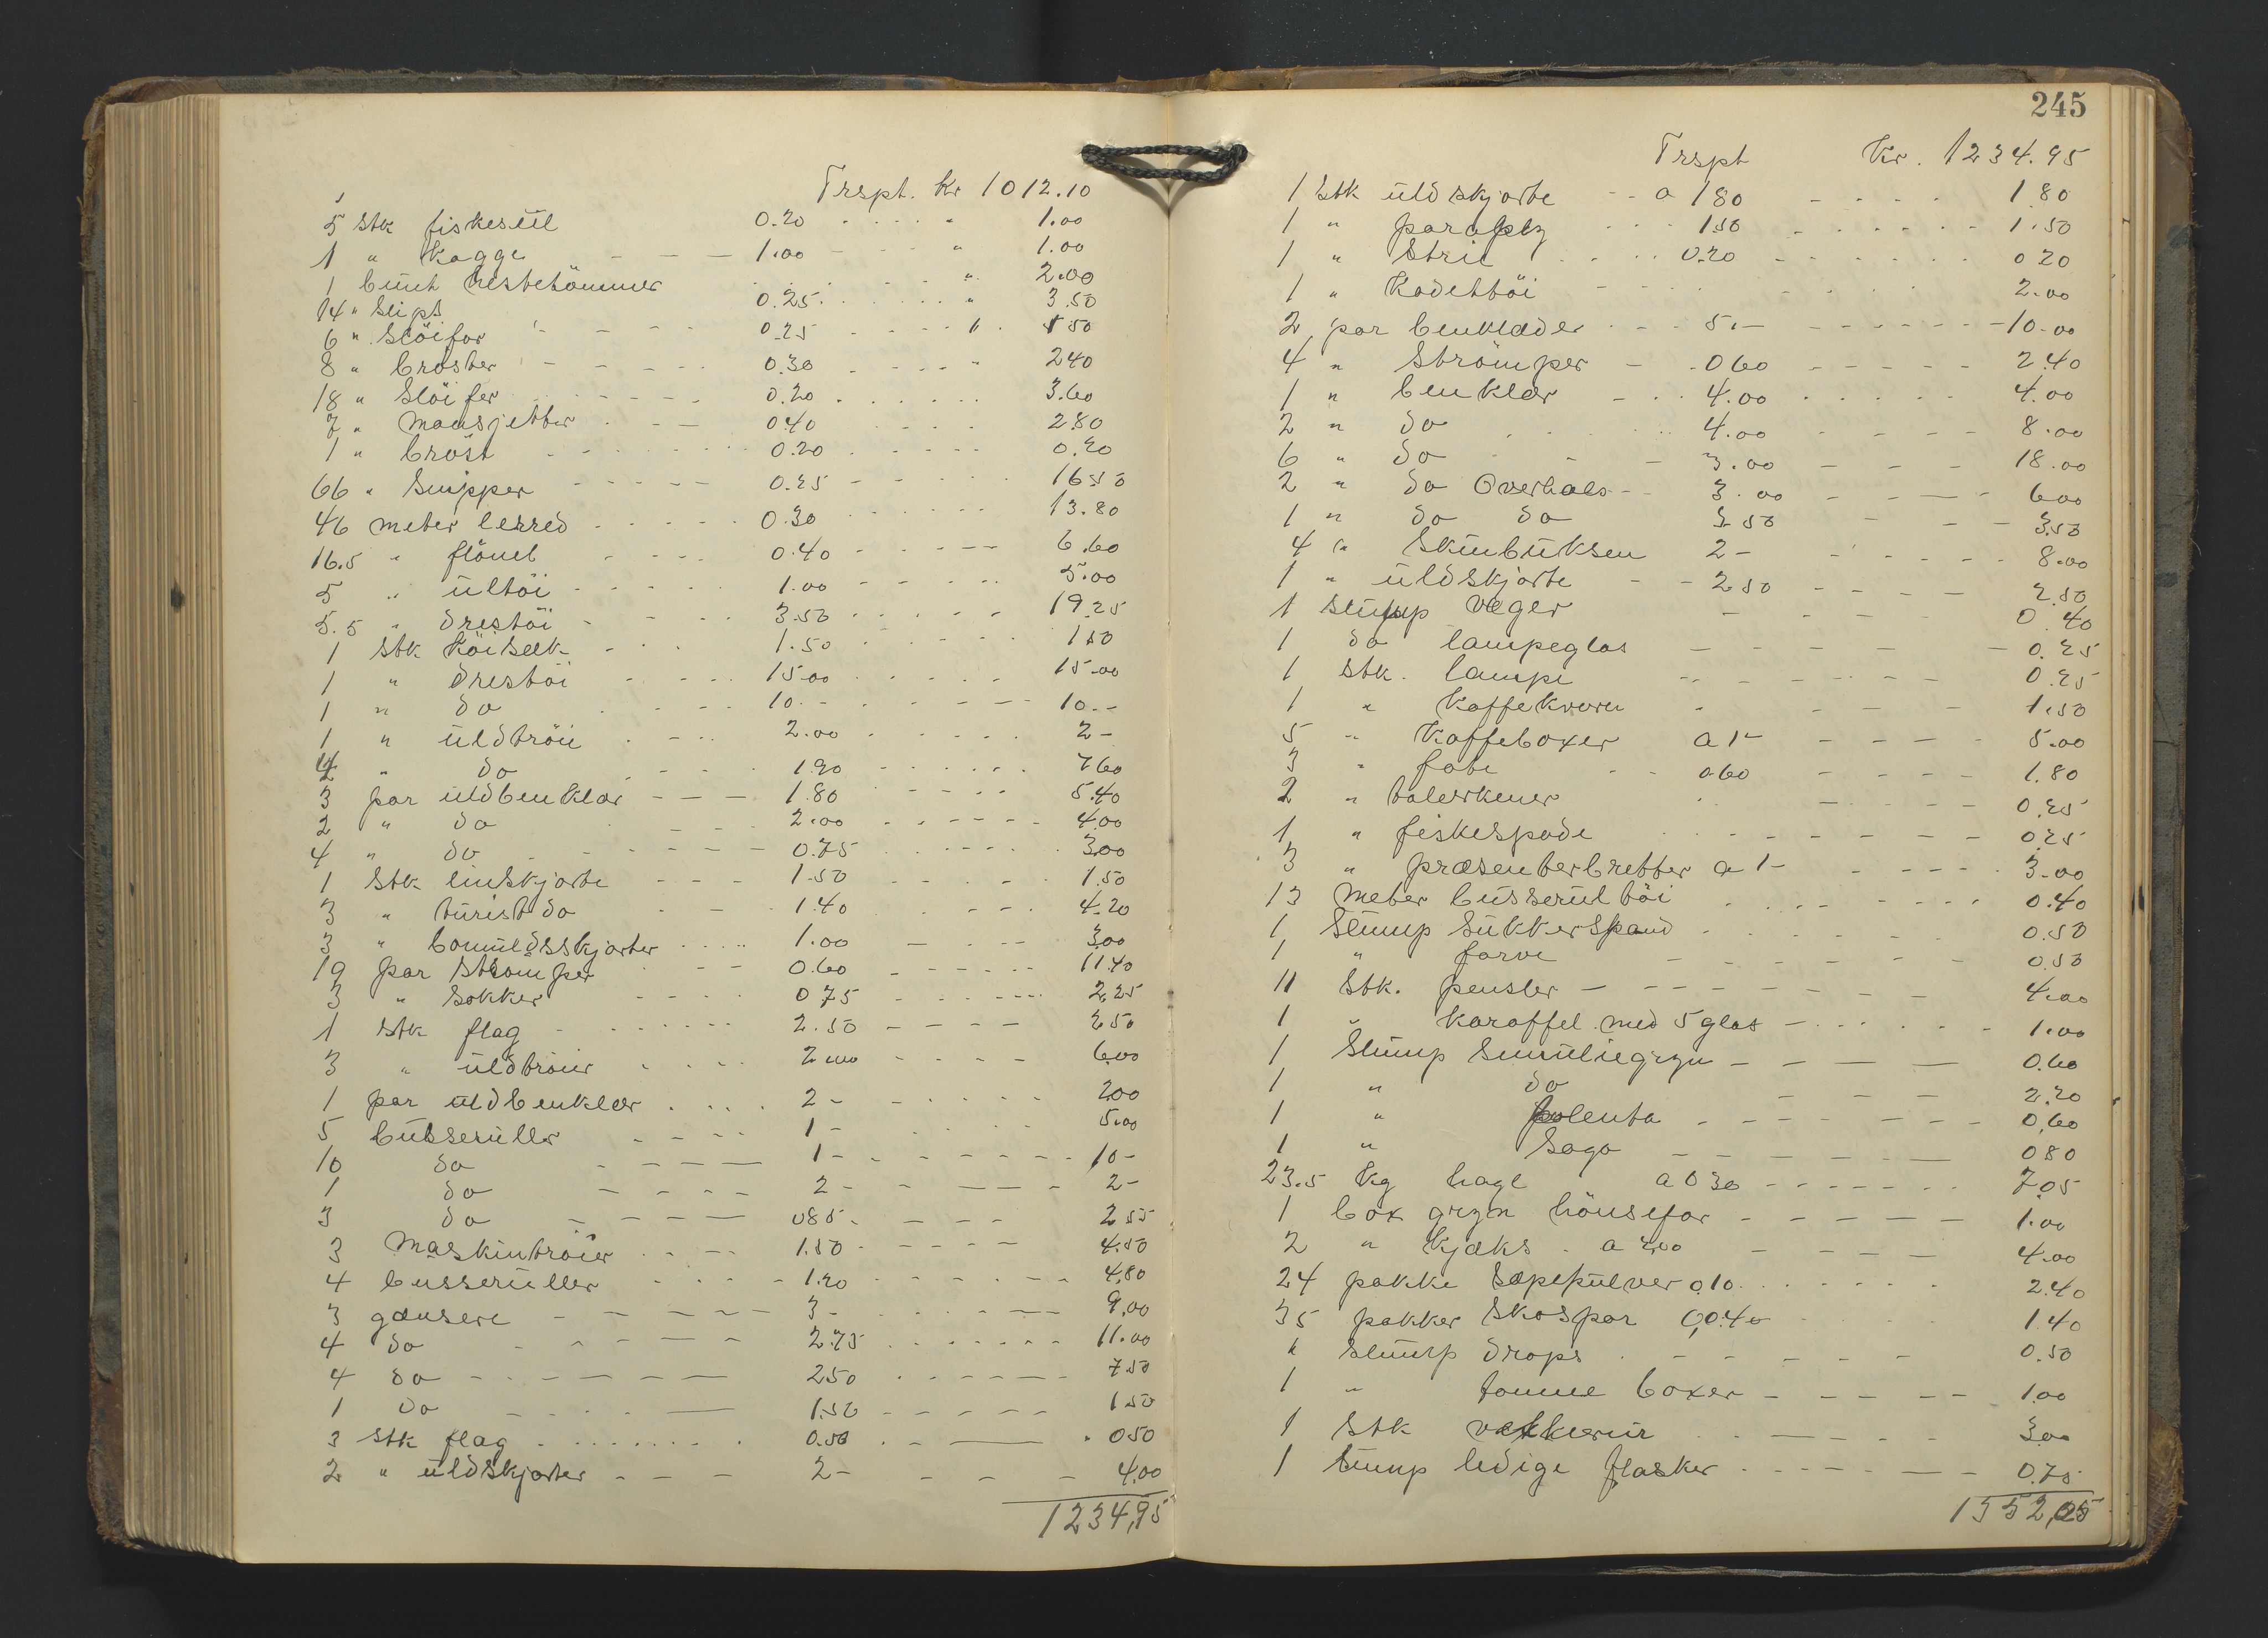 Trspt. Kr 1012.10
5 stk fiskesül 0.20 1.00
1 " Kagge 1.00 " 1.00
1 bunt hestetömmer " 2.00
14 " Slips 0.25 " 3.50
6 " Slöifor 0.25 1.50
8 " bröster 0.30 " 240
18 " Slöifer 0.20 3.60
7 " mansjetter 0.40 2.80
1 " bröst 0.20 0.20
66 " Snipper 0.25 16.50
46 meter lerred 0.30 13.80
16.5 " flönel 0.40 6.60
5 " ültöi 1.00 5.00
5.5 " drestöi 3.50 19.25
1 stk Köisek 1.50 1.50
1 " drestöi 15.00 15.00
1 " do 10.- 10.-
1 " üldtröie 2.00 2-
4 " do 1.90 7.60
3 par üldbenklær 1.80 5.40
2 " do 2.00 4.00
4 " do 0.75 3.00
1 stk linskjorte 1.50 1.50
3 " türist do 1.40 4.20
3 " bomüldsskjorter 1.00 3.00
19 par strömper 0.60 11.40
3 " Sokker 0.75 2,25
1 stk flag 2.50 2.50
3 " üldtröier 2.00 6.00
1 par üldbenklær 2- 2.00
5 büsserüller 1- 5.00
10 do 1- 10-
1 do 2- 2-
3 do 085 2.55
3 Maskintröier 1.50 4.50
4 busserüller 1.20 4,80
3 gænsere 3- 9,00
4 do 2.75 11.00
4 do 250 7.50
1 do 1.50 1.50
3 stk flag 0.50 0.50
2 " üldskjorter 2- 4.00
1234,95
245
Trspt Kr. 1234.95
1 stk üldskjorte a 180 1.80
1 " paraply 1.50 1.50
1 " Strie 0.20 0.20
1 " Kadettöi 2.00
2 par benklæder 5.- 10.00
4 " Strömper 0.60 2.40
1 " benklær 4.00 4.00
2 " do 4.00 8.00
6 " do 3.00 18.00
2 " do Overhals 3.00 6.00
1 " do do 3.50 3.50
4 " Skinbüksen 2- 8.00
1 " üldskjorte 2.50 2.50
1 slump væger 0.40
1 do lampeglas 0.25
1 stk. lampe 0.25
1 " Kaffekvern 1.50
5 " Kaffeboxer a 1- 5.00
3 " fate 0.60 1.80
2 " talerkener 0.25
1 " fiskespade 0.25
3 " præsenterbretter a 1- 3.00
13 meter büsserültöi 0.40
1 Slump Sukkerspand 0.50
1 " farve 0.50
11 stk. pensler 4.00
1 " karaffel med 5 glas 1.00
1 Slump Semüliegryn 0.60
1 " do 2.20
1 " polenta 0,60
1 " Sago 0.80
23.5 kg hagl a 0 30 7.05
1 box gryn hönsefor 1.00
2 " Kjæks a 2.00 4.00
24 pakke Sæpepülver 0.10 2.40
35 pakker Skospar 0,040 1.40
1 Slump drops 0.50
1 " tomme boxer 1.00
1 stk vækkerür 3.00
1 Slump ledige flasker 0.75
1352,05